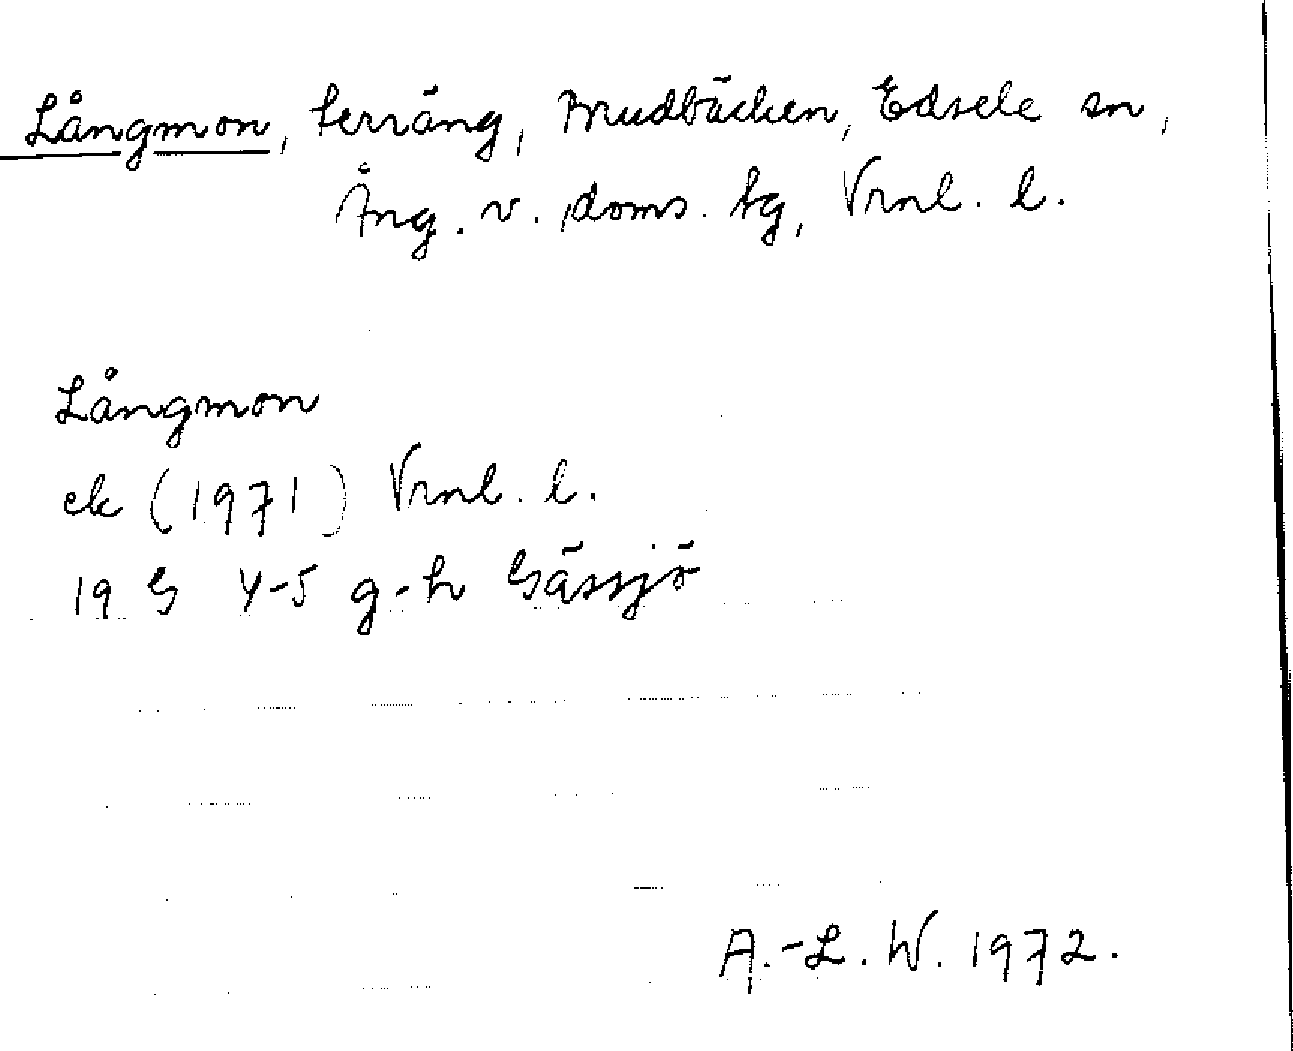 Långmon, terräng, Mudbäcken, Edsele sn,
Ång. v. doms. tg, Vrnl. l.
Långmon
ek (1971) Vrnl. l.
19 G 4-5 g-h Gåssjö
A.-L. W. 1972.